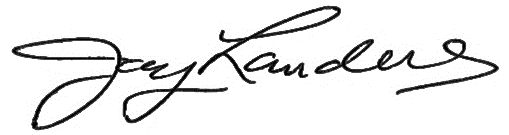 Jay Landers